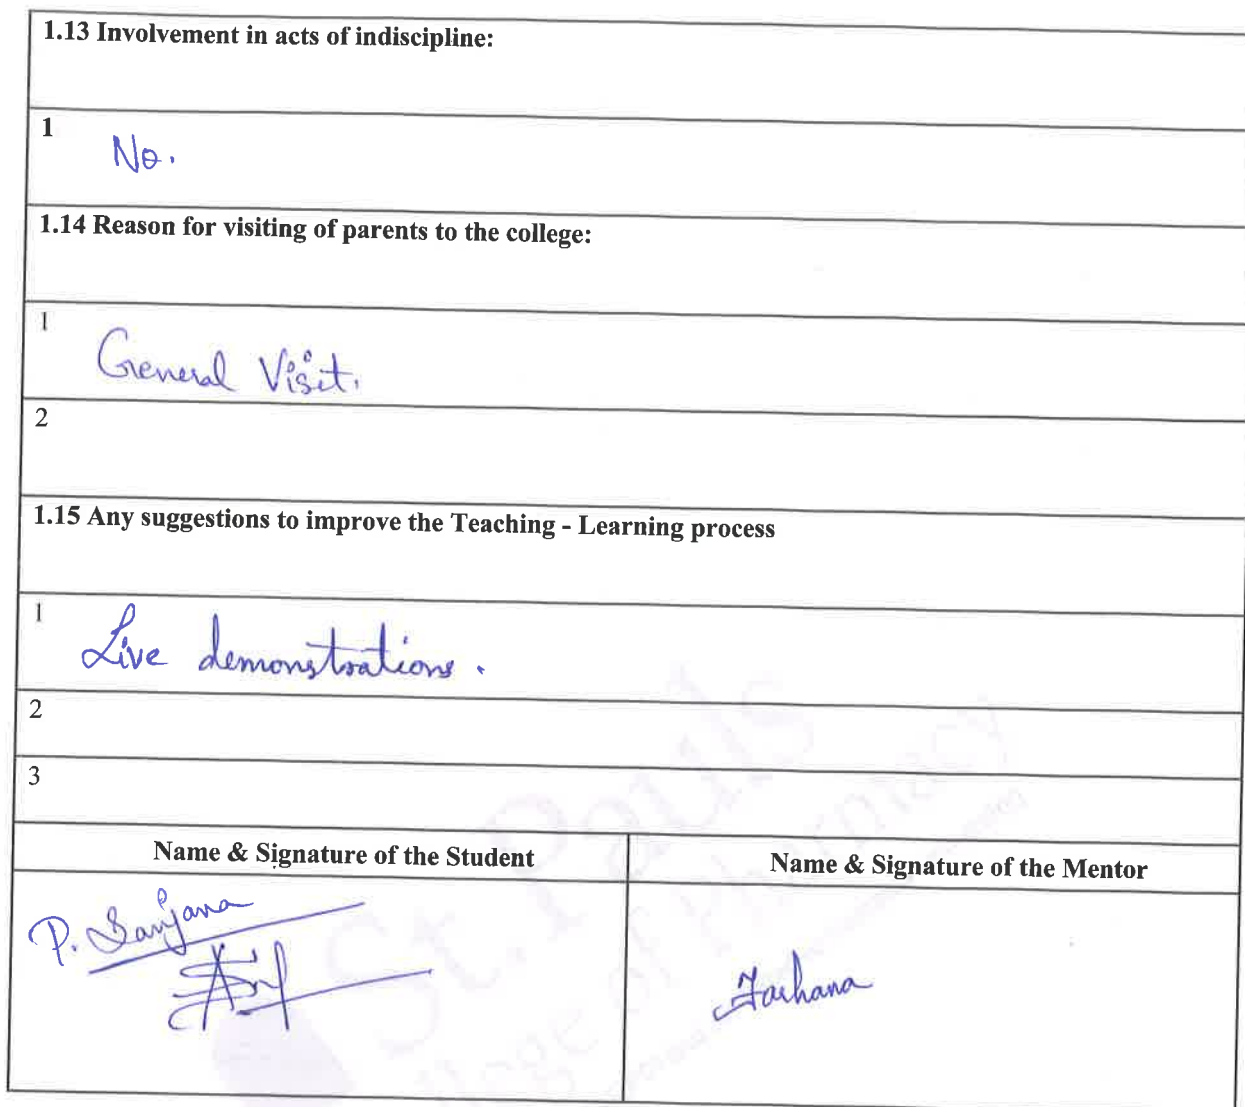 1.13 Involvement in acts of indiscipline:
1
No.
1.14 Reason for visiting of parents to the college:
1
General Visit.
2
1.15 Any suggestions to improve the Teaching - Learning process
1
Live demonstrations.
2
3
Name & Signature of the Student
Name & Signature of the Mentor
P. Sanjana
Farhana
St. Pauls
College of Pharmacy